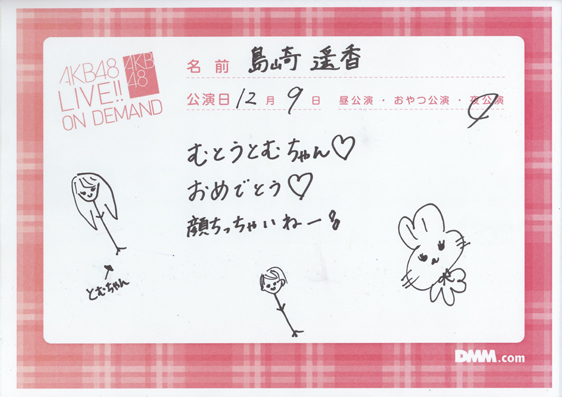 AKB48
LIVE!!
ON DEMAND
AKB
48
名前 島崎 遥香
公演日 12月 9日 昼公演・おやつ公演・夜公演
むとうとむちゃん♡
おめでとう♡
顔ちっちゃいねー
とむちゃん
DMM.com